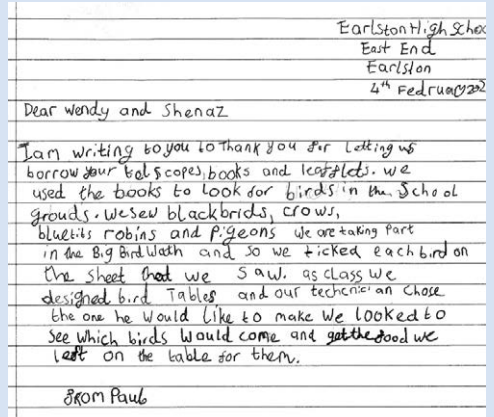 Earlston High Schoo
East End
Earlston
4th Fedruary 202
Dear Wendy and Shenaz
I am writing to you to thank you for letting us
borrow your telscopes, books and leafflets. we
used the books to look for birds in the School
grouds. We sew blackbrids, crows,
bluetits robins and Pigeons we are taking Part
in the Big Bird Wath and so we ticked each bird on
the sheet that we saw. as class we
designed bird Tables and our techcnician chose
the one he would like to make We looked to
see which birds would come and get the food we
left on the table for them.
From Paul